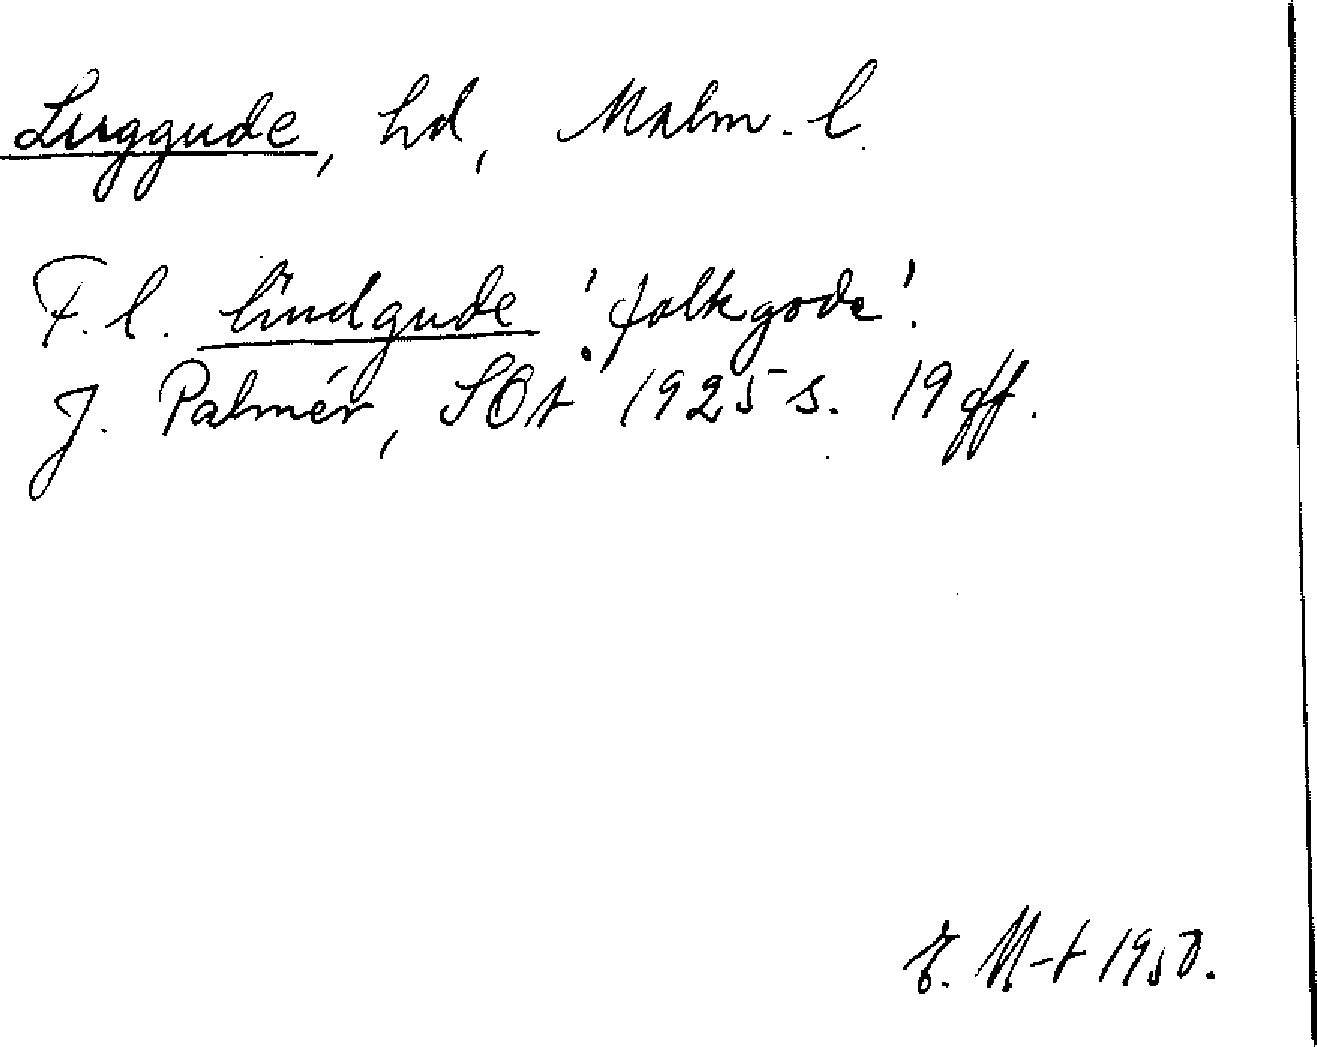 Luggude, hd, Malm. l.
F. l. liudgude 'folkgode'.
J. Palmér, SOÅ 1925 s. 19 ff.
M-t 1950.